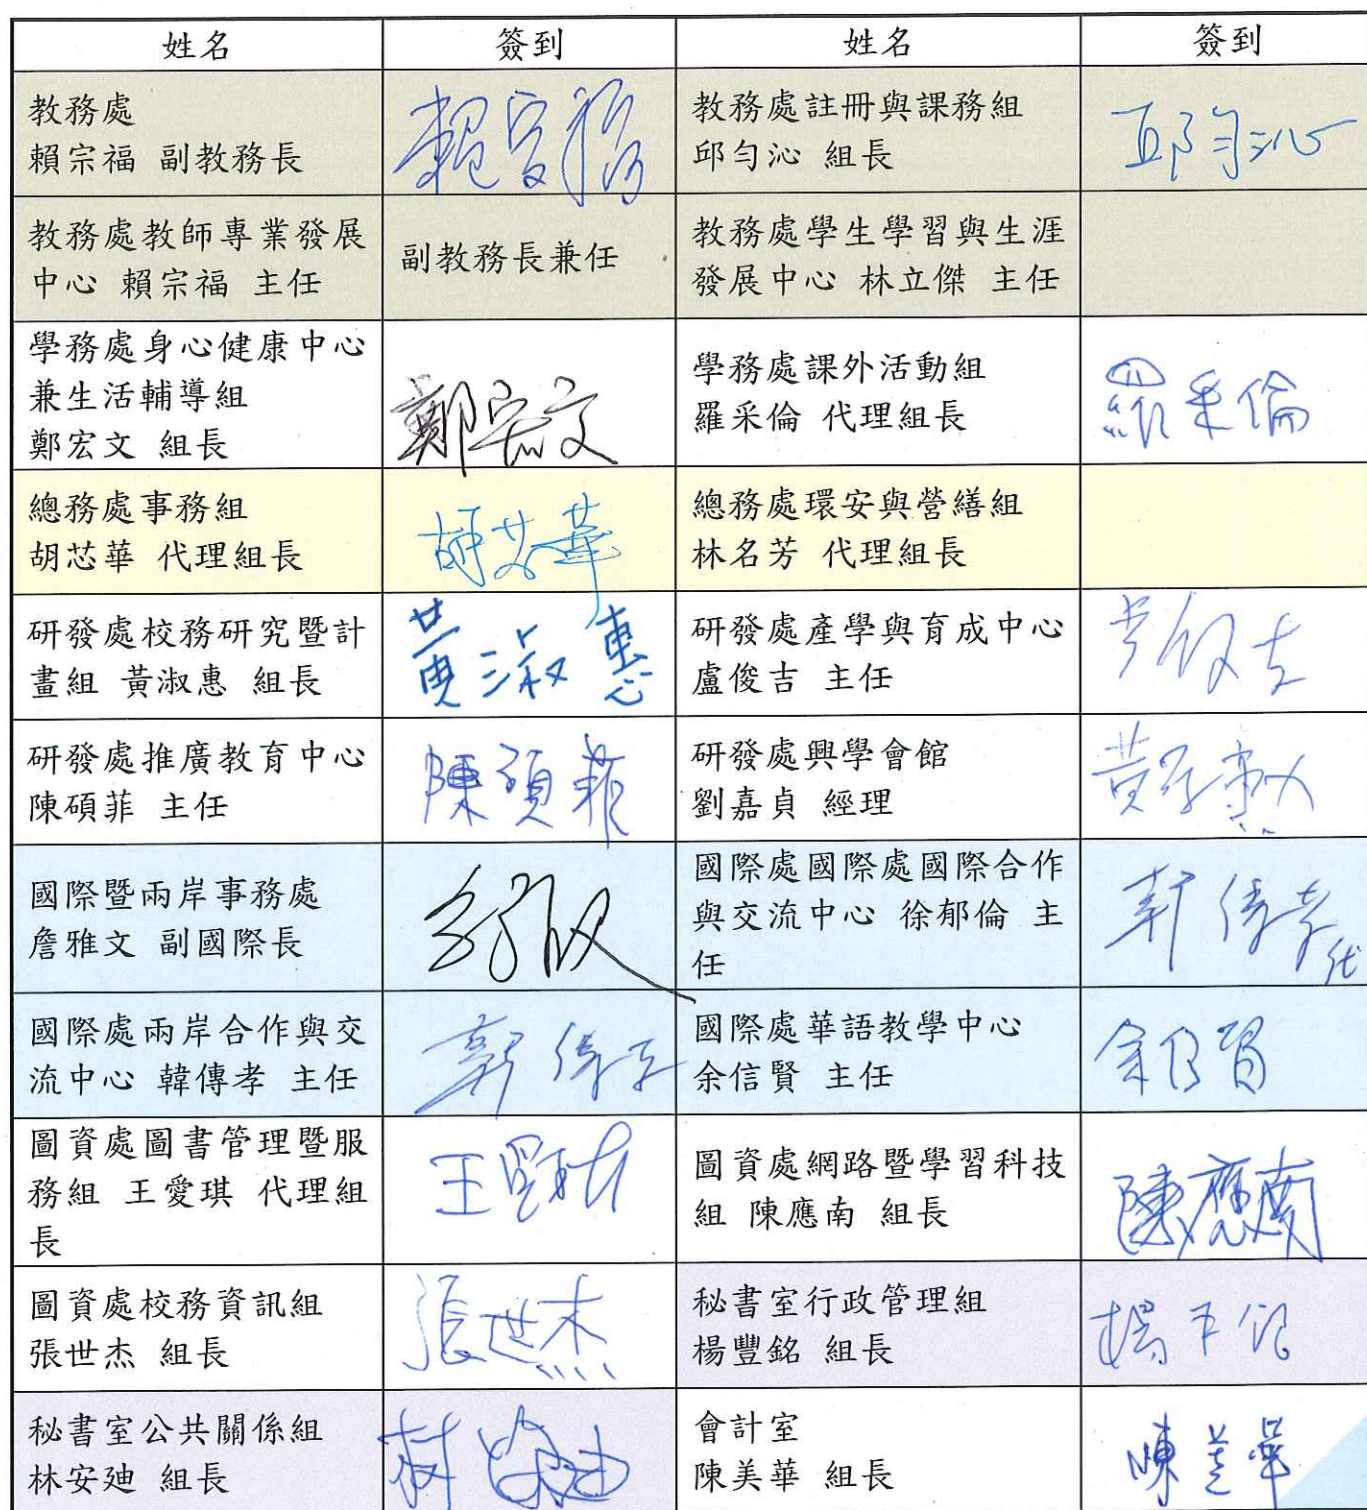 姓名 簽到 姓名 簽到
教務處
賴宗福 副教務長
賴宗福
教務處註冊與課務組
邱勻沁 組長
邱勻沁
教務處教師專業發展
中心 賴宗福 主任
副教務長兼任
教務處學生學習與生涯
發展中心 林立傑 主任
學務處身心健康中心
兼生活輔導組
鄭宏文 組長
鄭宏文
學務處課外活動組
羅采倫 代理組長
羅采倫
總務處事務組
胡芯華 代理組長
胡芯華
總務處環安與營繕組
林名芳 代理組長
研發處校務研究暨計
畫組 黃淑惠 組長
黃淑惠
研發處產學與育成中心
盧俊吉 主任
研發處推廣教育中心
陳碩菲 主任
陳碩菲
研發處興學會館
劉嘉貞 經理
國際暨兩岸事務處
詹雅文 副國際長
國際處國際處國際合作
與交流中心 徐郁倫 主
任
韓傳孝代
國際處兩岸合作與交
流中心 韓傳孝 主任
韓傳孝
國際處華語教學中心
余信賢 主任
余信賢
圖資處圖書管理暨服
務組 王愛琪 代理組
長
圖資處網路暨學習科技
組 陳應南 組長
陳應南
圖資處校務資訊組
張世杰 組長
張世杰
秘書室行政管理組
楊豐銘 組長
秘書室公共關係組
林安廸 組長
林安廸
會計室
陳美華 組長
陳美華